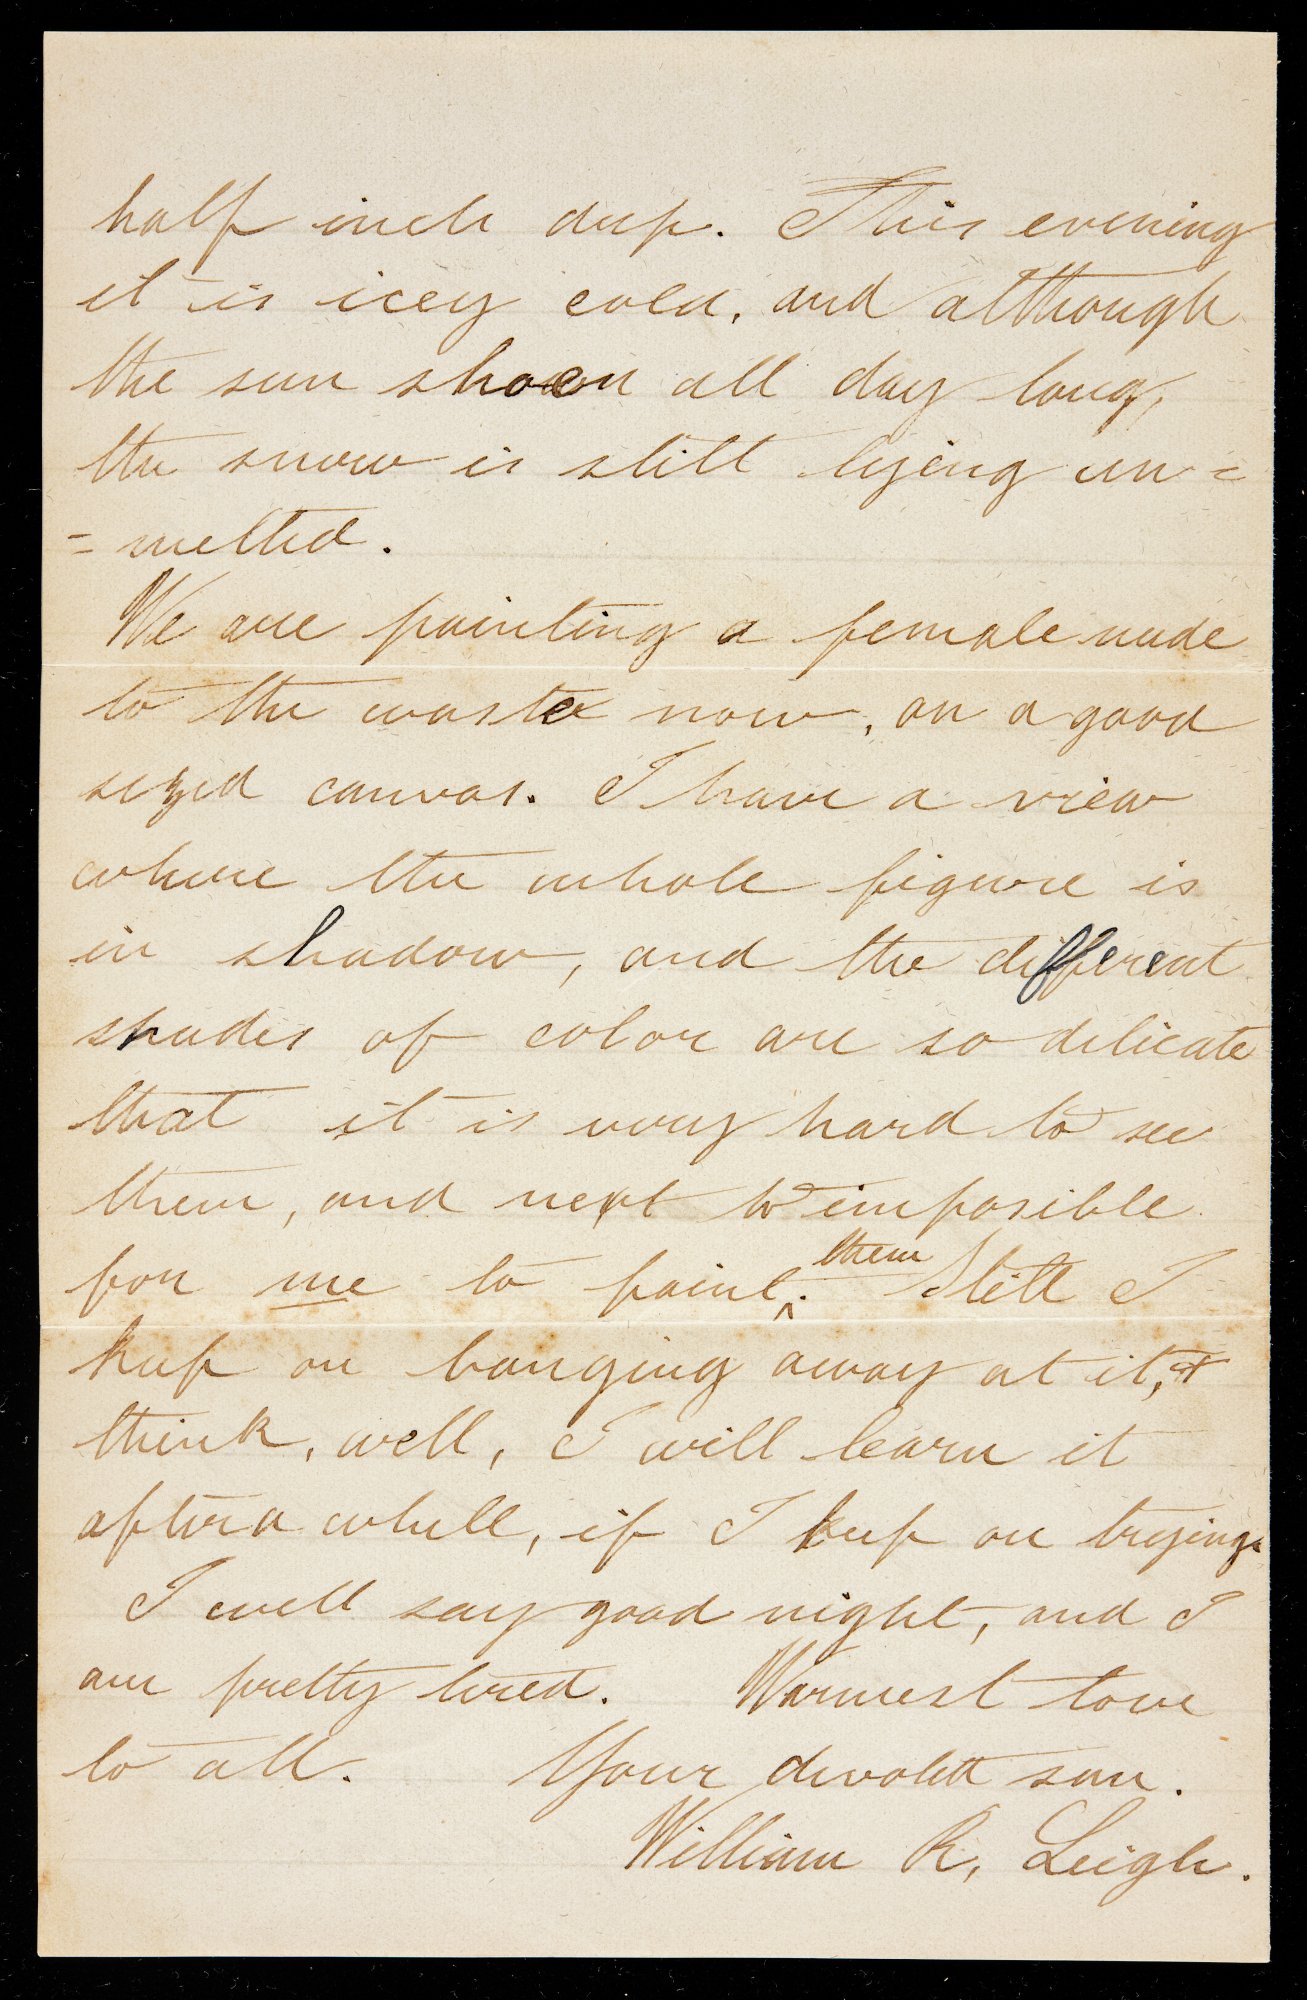 half inch deep. This evening
it is icey cold, and although
the sun shoen all day long,
the snow is still lyeing un=
=melted.
We are painting a female nude
to the waste now, on a good
sezed canvas. I have a view
where the whole figure is
in shadow, and the different
shades of color are so delicate
that it is very hard to see
them, and next to imposible
for me to paint ^them. Still I
keep on banging away at it, &
think, well, I will learn it
after a whill, if I keep on tryeing.
I will say good night, and I
am pretty tired. Warmest love
to all. Your devotett son.
William R. Leigh.